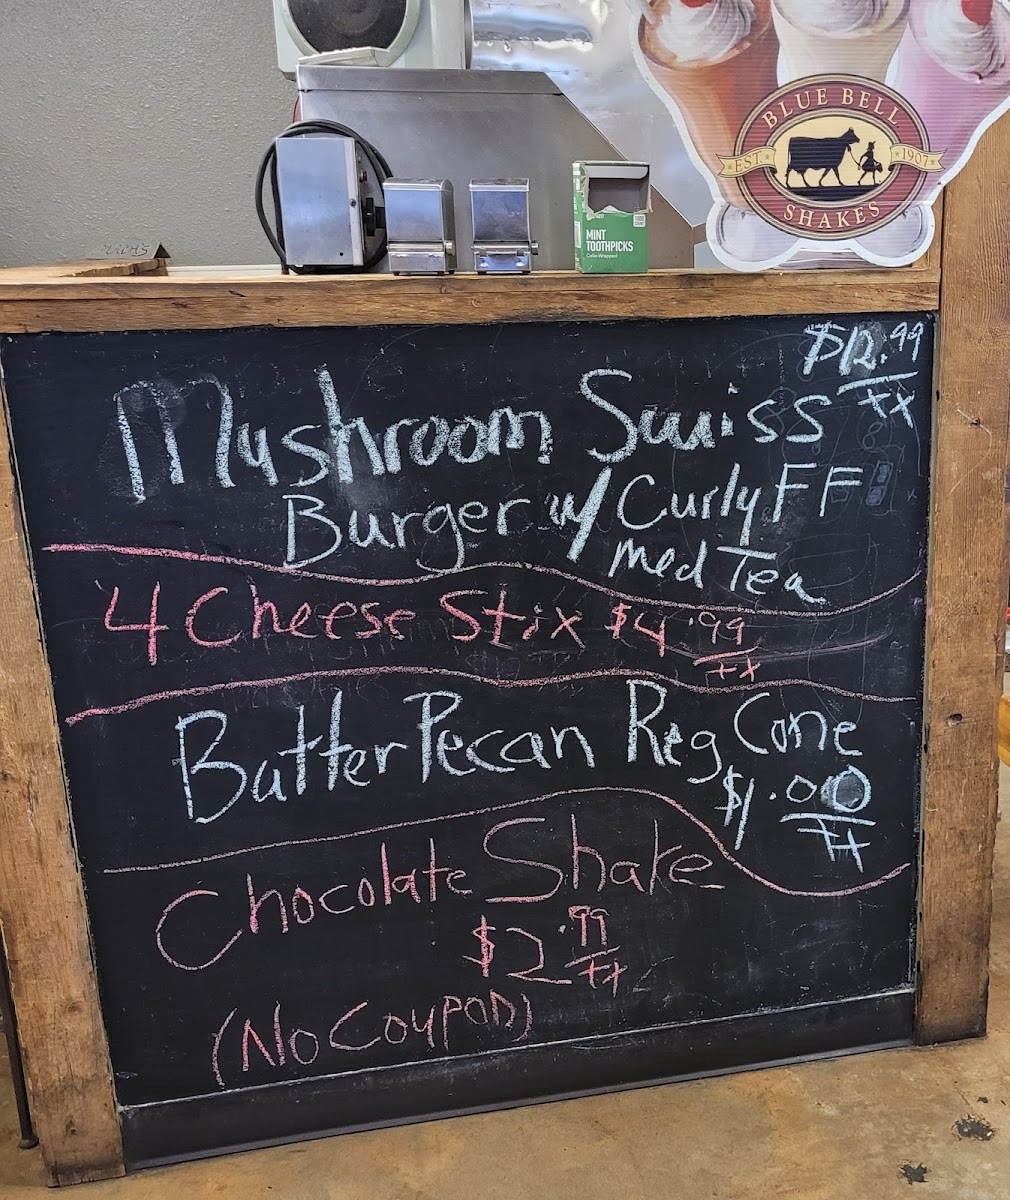 BLUE BELL
EST. 1907
SHAKES
MINT
TOOTHPICKS
Cello-Wrapped
$12.99
xx
Mushroom Swiss
Burger w/ Curly FF
med Tea
4 Cheese Stix $4.99
xx
Butter Pecan Reg Cone
$1.00
xx
Chocolate Shake
$2.99
xx
(No Coupon)